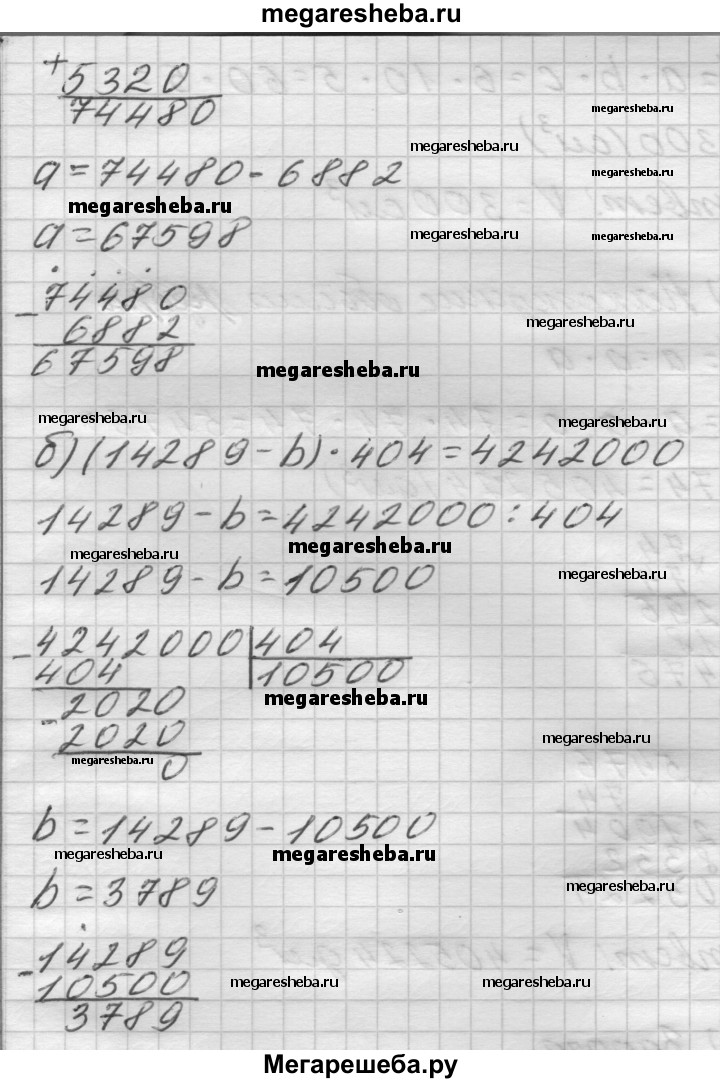 megaresheba.ru
+ 5320
74480
megaresheba.ru
megaresheba.ru
a = 74480 - 6882
megaresheba.ru
megaresheba.ru
a = 67598
megaresheba.ru
megaresheba.ru
- 74480
6882
megaresheba.ru
67598
megaresheba.ru
megaresheba.ru
megaresheba.ru
б) (14289 - b) · 404 = 4242000
14289 - b = 4242000 : 404
megaresheba.ru
megaresheba.ru
14289 - b = 10500
megaresheba.ru
- 4242000 | 404
404 | 10500
megaresheba.ru
2020
- 2020
megaresheba.ru
megaresheba.ru
0
b = 14289 - 10500
megaresheba.ru
megaresheba.ru
b = 3789
megaresheba.ru
- 14289
10500
megaresheba.ru
megaresheba.ru
3789
Мегарешеба.ру